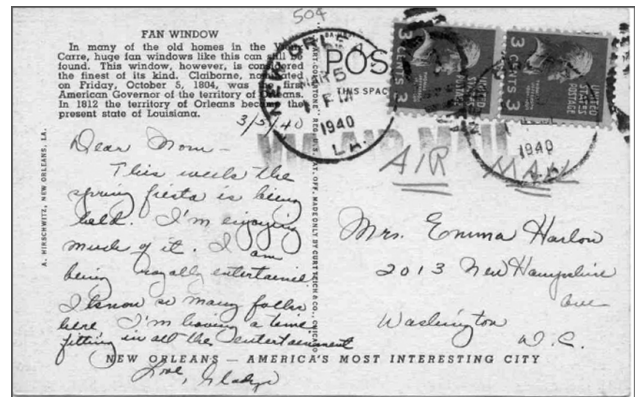 504
FAN WINDOW
In many of the old homes in the Vieux
Carre, huge fan windows like this can still be
found. This window, however, is considered
the finest of its kind. Claiborne, nominated
on Friday, October 5, 1804, was the first
American Governor of the territory of Orleans.
In 1812 the territory of Orleans became the
present state of Louisiana.
3/5/40
POS
THIS SPAC
NEW ORLEANS
MAR 5
PM
1940
LA.
3 CENTS 3
UNITED STATES POSTAGE
3 CENTS 3
UNITED STATES POSTAGE
1940
VIA AIR MAIL
AIR MAIL
Dear Mom –
This week the
spring fiesta is being
held. I'm enjoying
much of it. I am
being royally entertained.
I know so many folks
here. I'm having a time
fitting in all the entertainment
Love, Gladys
Mrs. Emma Harlow
2013 New Hampshire
Ave
Washington
D.C.
NEW ORLEANS — AMERICA'S MOST INTERESTING CITY
A. HIRSCHWITZ, NEW ORLEANS, LA.
REG. U.S. PAT. OFF. MADE ONLY BY CURT TEICH & CO., CHICAGO